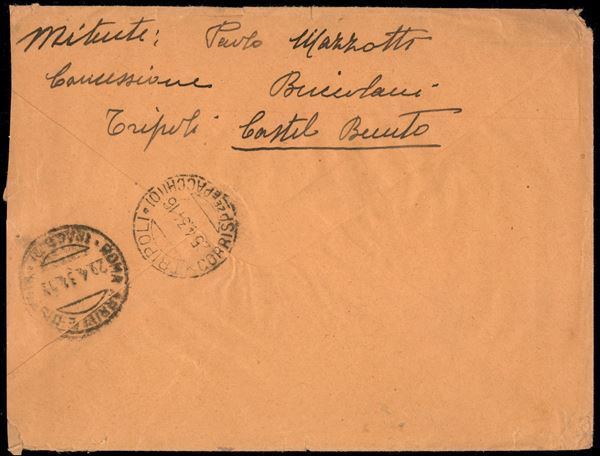 Mittente: Paolo Mazzotti
Concessione Buccolani
Tripoli Castel Benito
TRIPOLI • CORRISP ZE E PACCHI
5.4.34-16
ROMA ARRIVI E
29.4.34